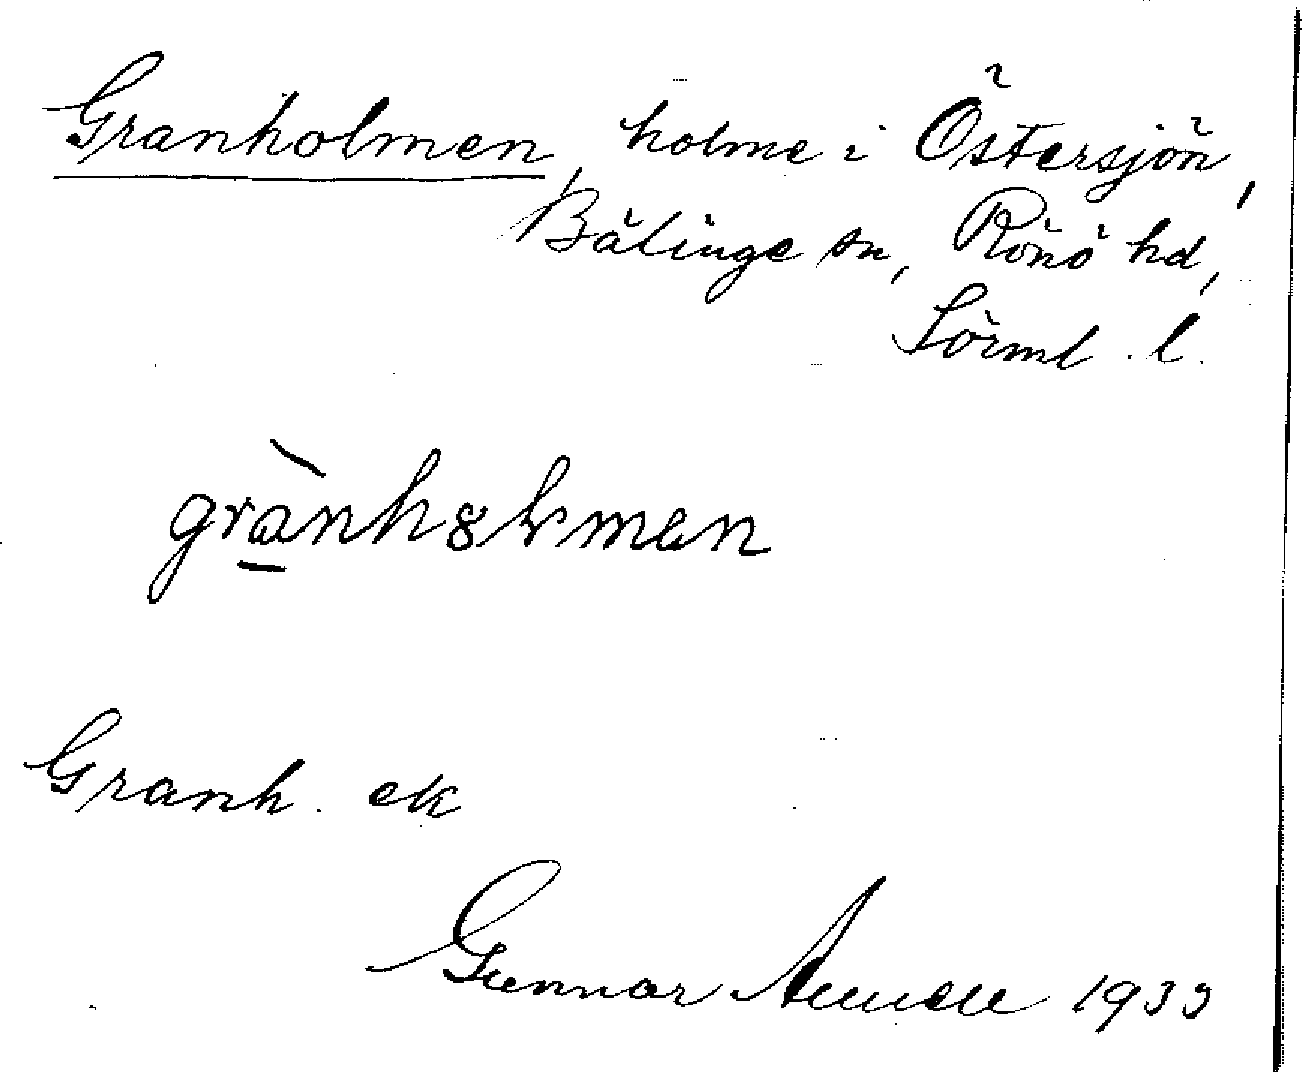 Granholmen, holme i Östersjön,
Bälinge sn, Rönö hd,
Sörml. l.
grànhȣlmen
Granh. ek
Gunnar 1933